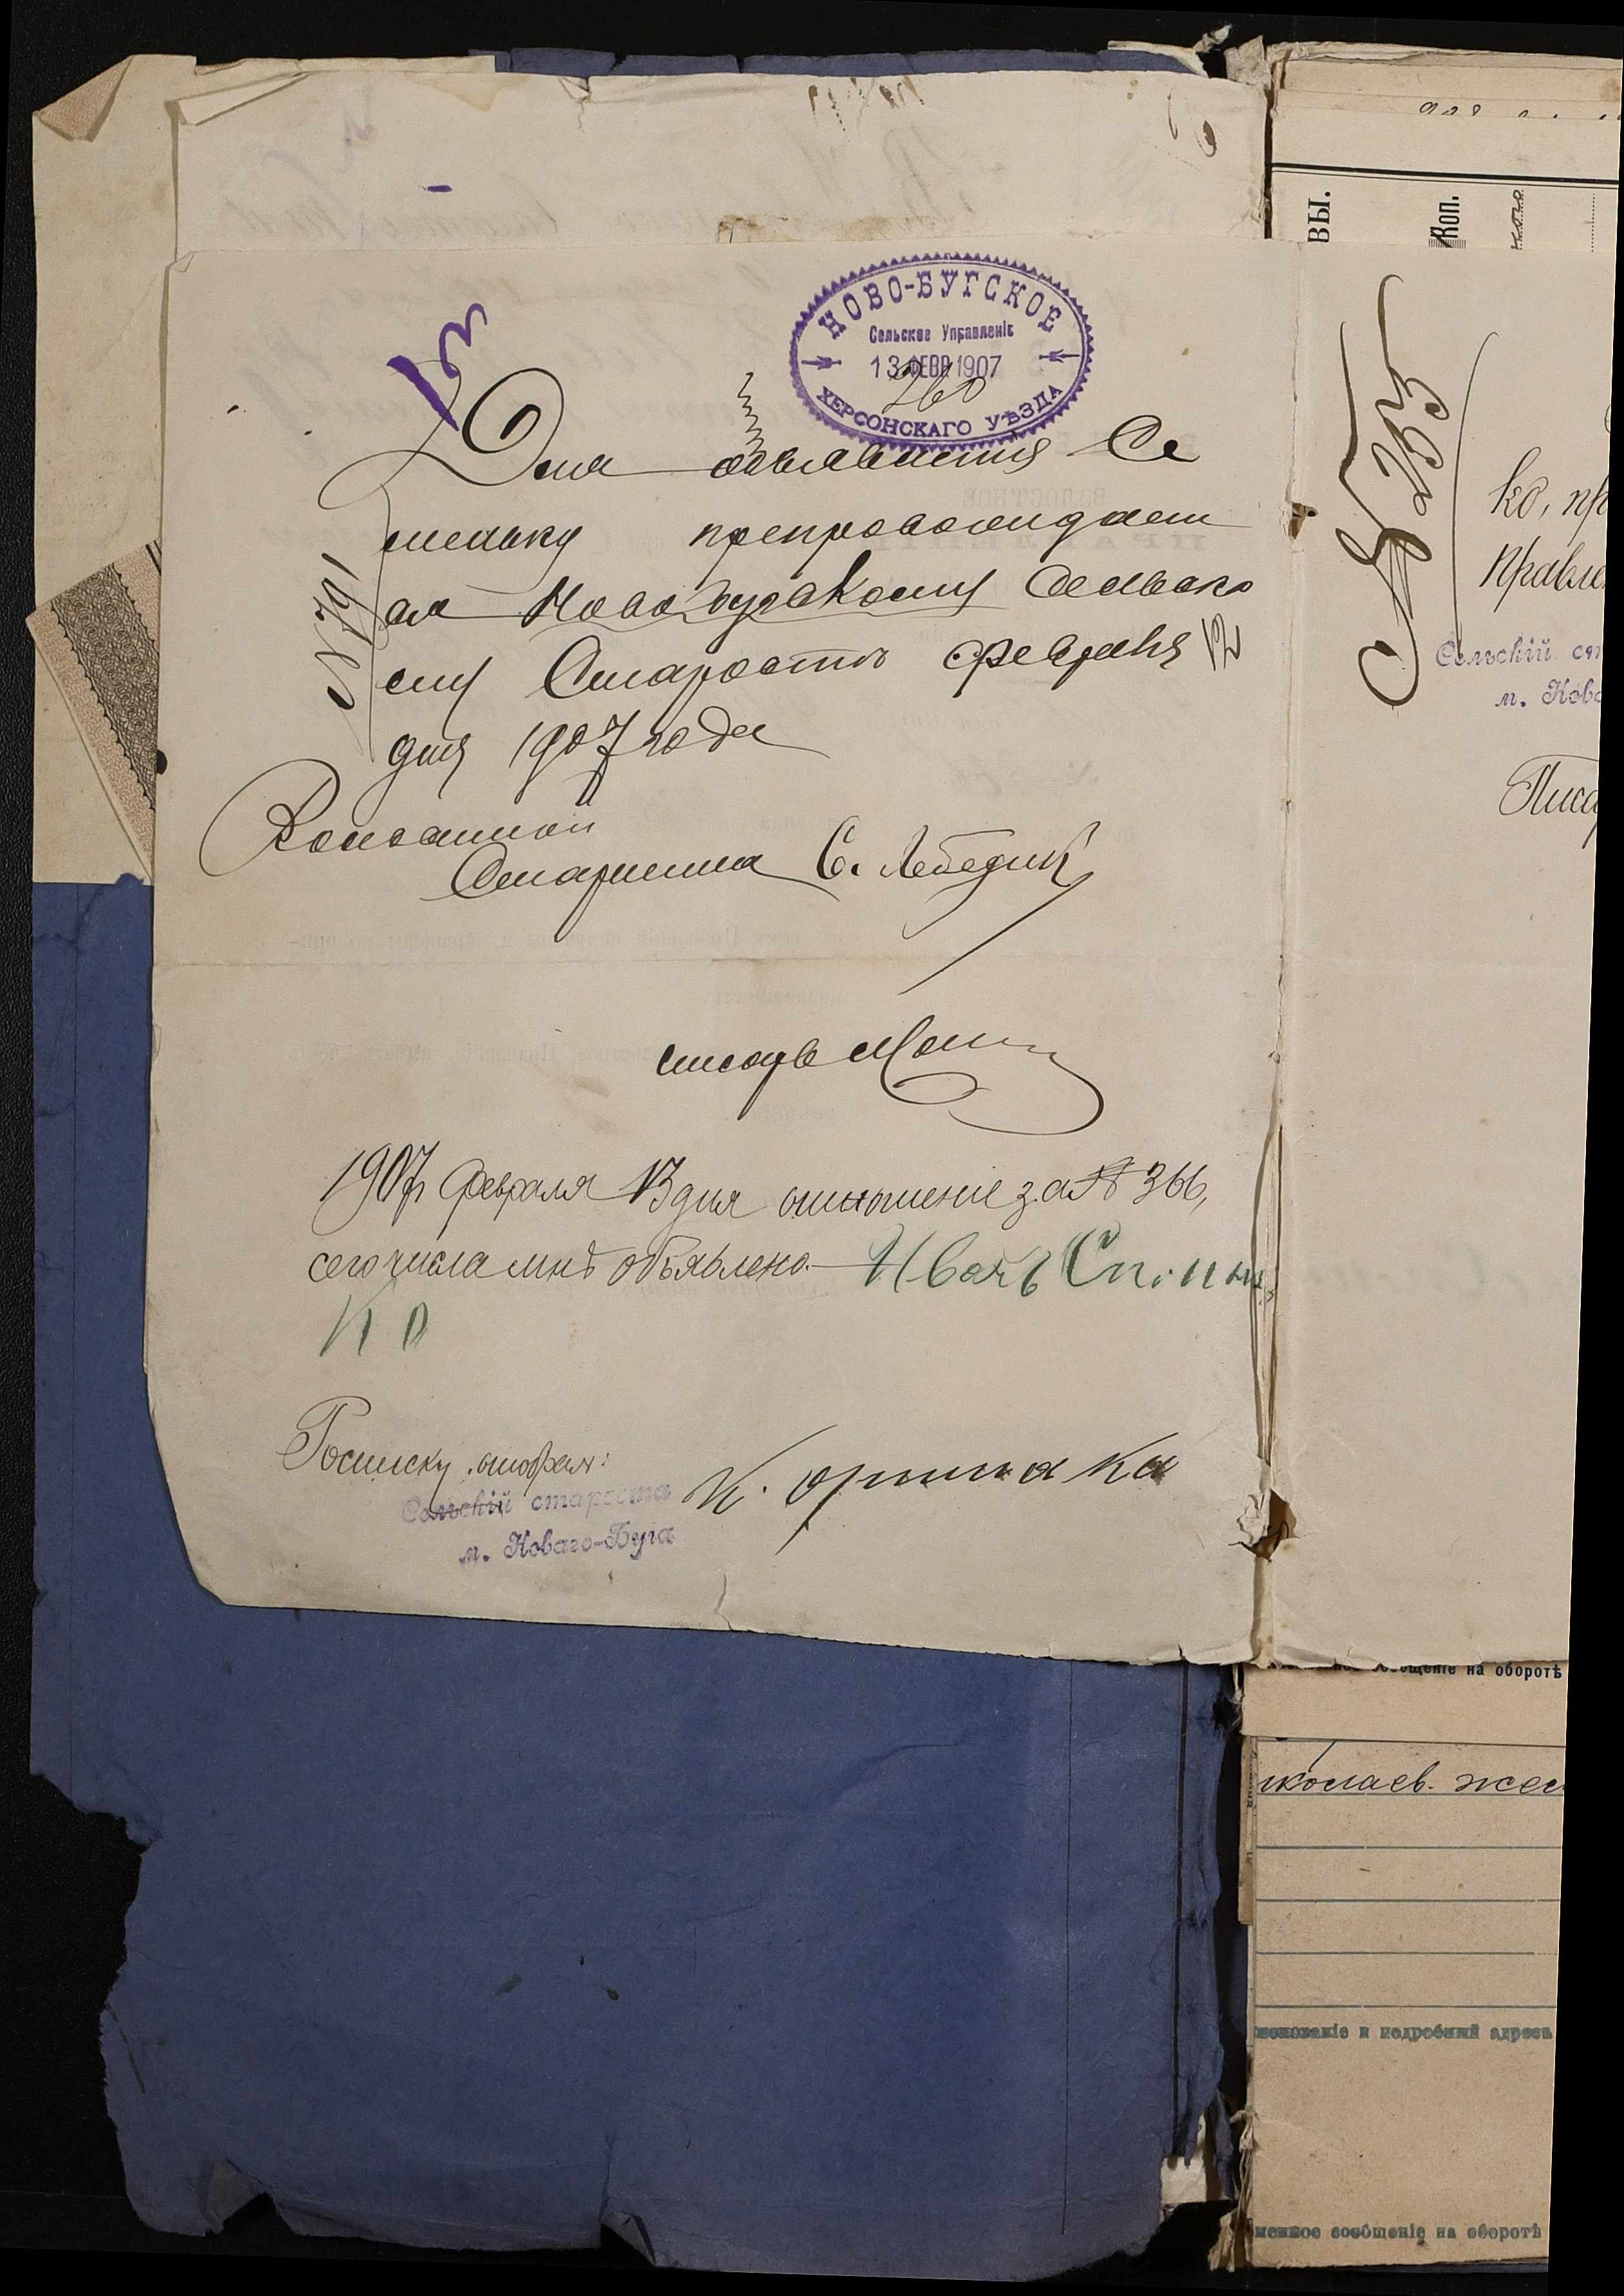 13
НОВО-БУГСКОЕ
Сельское Управленіе
13 ФЕВР 1907
260
ХЕРСОНСКАГО УѢЗДА
Для объявленія Се
менаку препровождает
ся Новобугскому Сельско
му Старостѣ Февраля 12
дня 1907 года
№ 791
Волостной
Старшина С. Лебедик
писарь
1907 г. Февраля 13 дня отношеніе за № 366,
сего числа мнѣ объявлено. Иванъ
ко
Росписку отобралъ:
Сельскій староста
м. Новаго-Буга
ВЫ.
Коп.
№ 255
ко, пр
Правле
Сельскій ст
м. Ново
Писа
на оборотѣ
иколаев. жел
и подробный адресъ
менное сообщеніе на оборотѣ